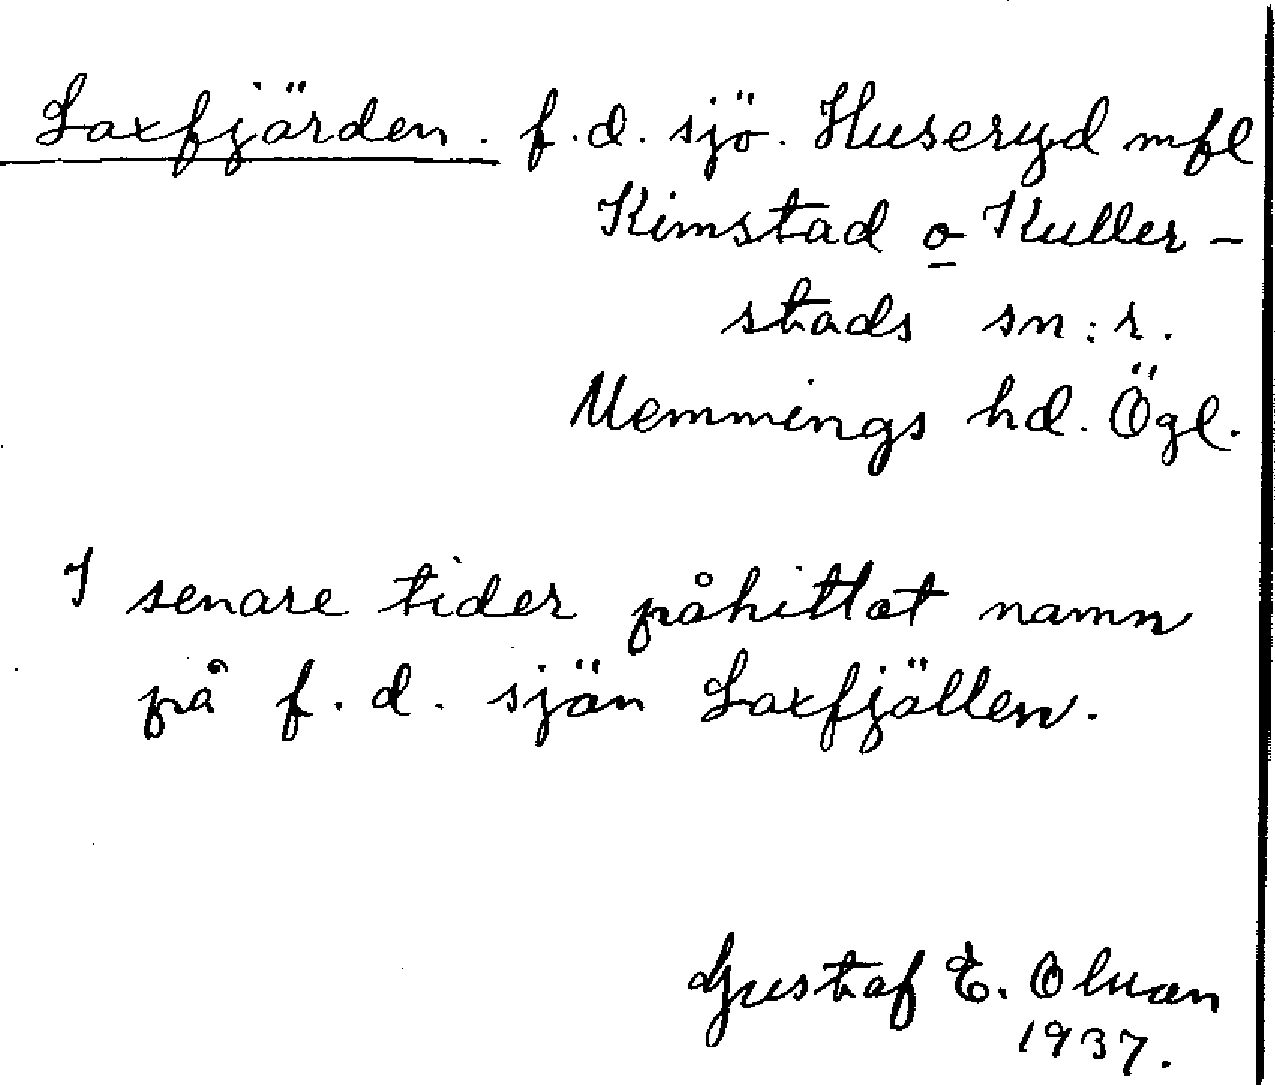 Laxfjärden. f.d. sjö. Huseryd mfl
Kimstad o Kuller-
stads sn:r.
Memmings hd. Ögl.
I senare tider påhittat namn
på f.d. sjön Laxfjällen.
Gustaf E.
1937.